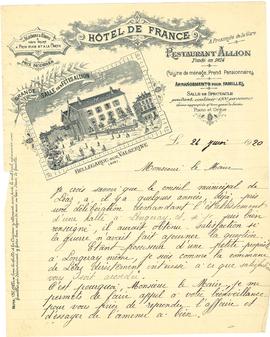 HÔTEL DE FRANCE
A Proximité de la Gare
RESTAURANT ALLION
Fondé en 1874
Cuisine de ménage, Prend Pensionnaires
ARRANGEMENTS POUR FAMILLES
SALLE DE SPECTACLE
Piano et Orgue
PRIX MODÉRÉS
GRANDE SALLE DES FÊTES ALLION
BELLEGARDE-SUR-VALSERINE
(AIN)
Le 21 juin 1920
Monsieur le Maire
Je crois savoir que le conseil municipal de
a, il y a quelques années, déjà, pris
une délibération demandant l'établissement
d'une halte à Longeray et, si je suis bien
renseigné, il aurait obtenu satisfaction si
la guerre n'avait fait ajourner la question.
Etant possesseur d'une petite propriété
à Longeray même, je suis comme la commune
de directement intéressé à ce que satisfaction
vous soit accordée.
C'est pourquoi, Monsieur le Maire, je me
permets de faire appel à votre bienveillance
pour vous prier de reprendre l'affaire et
d'essayer de l'amener à bien.